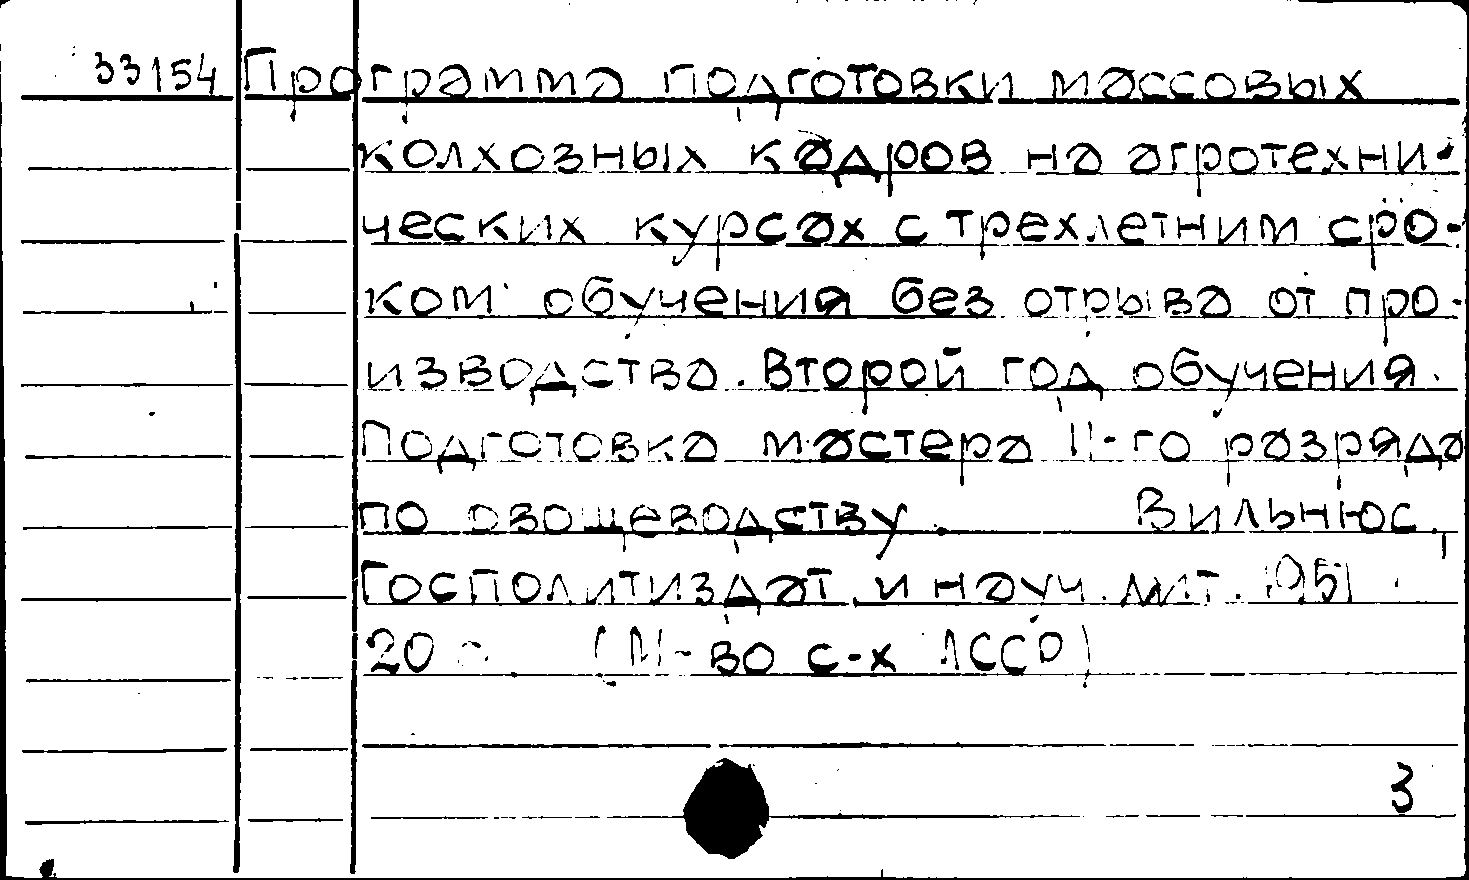 33154 Программа подготовки массовых
колхозных кадров на агротехни-
ческих курсах с трехлетним сро-
ком обучения без отрыва от про-
изводства. Второй год обучения.
Подготовка мастера II-го разряда
по овощеводству. Вильнюс,
Госполитиздат. и науч. лит. 1951.
20 с. (М-во с-х ЛССР)
3